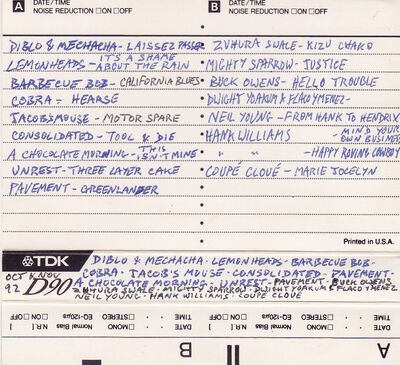 A DATE/TIME
NOISE REDUCTION □ON □OFF
B DATE/TIME
NOISE REDUCTION □ON □OFF
DIBLO & MECHACHA - LAISSEZ PASSER
LEMONHEADS - IT'S A SHAME ABOUT THE RAIN
BARBECUE BOB - CALIFORNIA BLUES
COBRA - HEARSE
JACOB'S MOUSE - MOTOR SPARE
CONSOLIDATED - TOOL & DIE
A CHOCOLATE MORNING - THIS ISN'T MINE
UNREST - THREE LAYER CAKE
PAVEMENT - GREENLANDER
ZUHURA SWALE - KIZU CHAKO
MIGHTY SPARROW - JUSTICE
BUCK OWENS - HELLO TROUBLE
DWIGHT YOAKUM & FLACO JIMENEZ -
NEIL YOUNG - FROM HANK TO HENDRIX
HANK WILLIAMS - MIND YOUR OWN BUSINESS
" " - HAPPY ROVING COWBOY
COUPÉ CLOUÉ - MARIE JOCELYN
Printed in U.S.A.
TDK
D90
OCT & NOV
92
DIBLO & MECHACHA - LEMONHEADS - BARBECUE BOB -
COBRA - JACOB'S MOUSE - CONSOLIDATED - PAVEMENT -
A CHOCOLATE MORNING - UNREST - PAVEMENT - BUCK OWENS
ZUHURA SWALE - MIGHTY SPARROW - DWIGHT YOAKUM & FLACO YMENEZ
NEIL YOUNG - HANK WILLIAMS - COUPÉ CLOUÉ
A
TIME
DATE
EQ-120µs
Normal Bias
□STEREO □MONO
N.R.[ ] □ON □OFF
B
TIME
DATE
EQ-120µs
Normal Bias
□STEREO □MONO
N.R.[ ] □ON □OFF